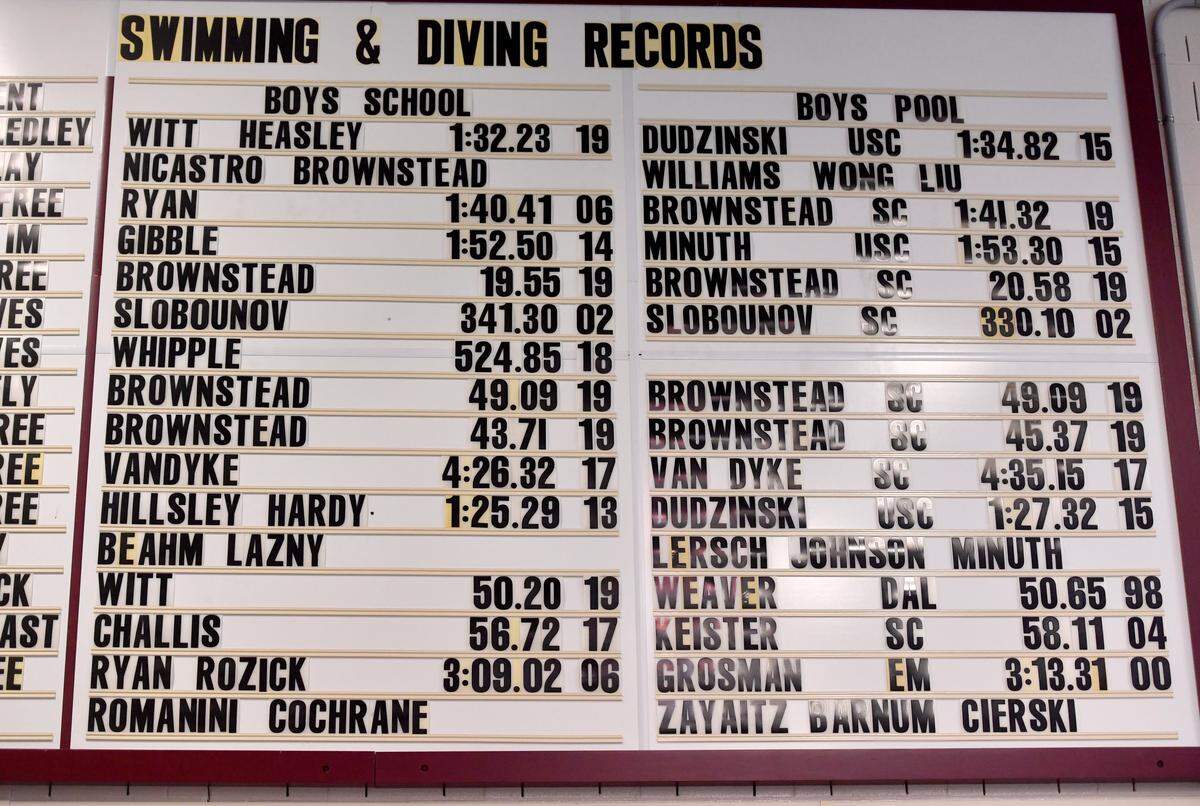 SWIMMING & DIVING RECORDS
BOYS SCHOOL BOYS POOL
EDLEY WITT HEASLEY 1:32.23 19 DUDZINSKI USC 1:34.82 15
NICASTRO BROWNSTEAD WILLIAMS WONG LIU
FREE RYAN 1:40.41 06 BROWNSTEAD SC 1:41.32 19
IM GIBBLE 1:52.50 14 MINUTH USC 1:53.30 15
REE BROWNSTEAD 19.55 19 BROWNSTEAD SC 20.58 19
VES SLOBOUNOV 341.30 02 SLOBOUNOV SC 330.10 02
VES WHIPPLE 524.85 18
LY BROWNSTEAD 49.09 19 BROWNSTEAD SC 49.09 19
REE BROWNSTEAD 43.71 19 BROWNSTEAD SC 45.37 19
REE VANDYKE 4:26.32 17 VAN DYKE SC 4:35.15 17
REE HILLSLEY HARDY 1:25.29 13 DUDZINSKI USC 1:27.32 15
BEAHM LAZNY LERSCH JOHNSON MINUTH
CK WITT 50.20 19 WEAVER DAL 50.65 98
AST CHALLIS 56.72 17 KEISTER SC 58.11 04
EE RYAN ROZICK 3:09.02 06 GROSMAN EM 3:13.31 00
ROMANINI COCHRANE ZAYAITZ BARNUM CIERSKI